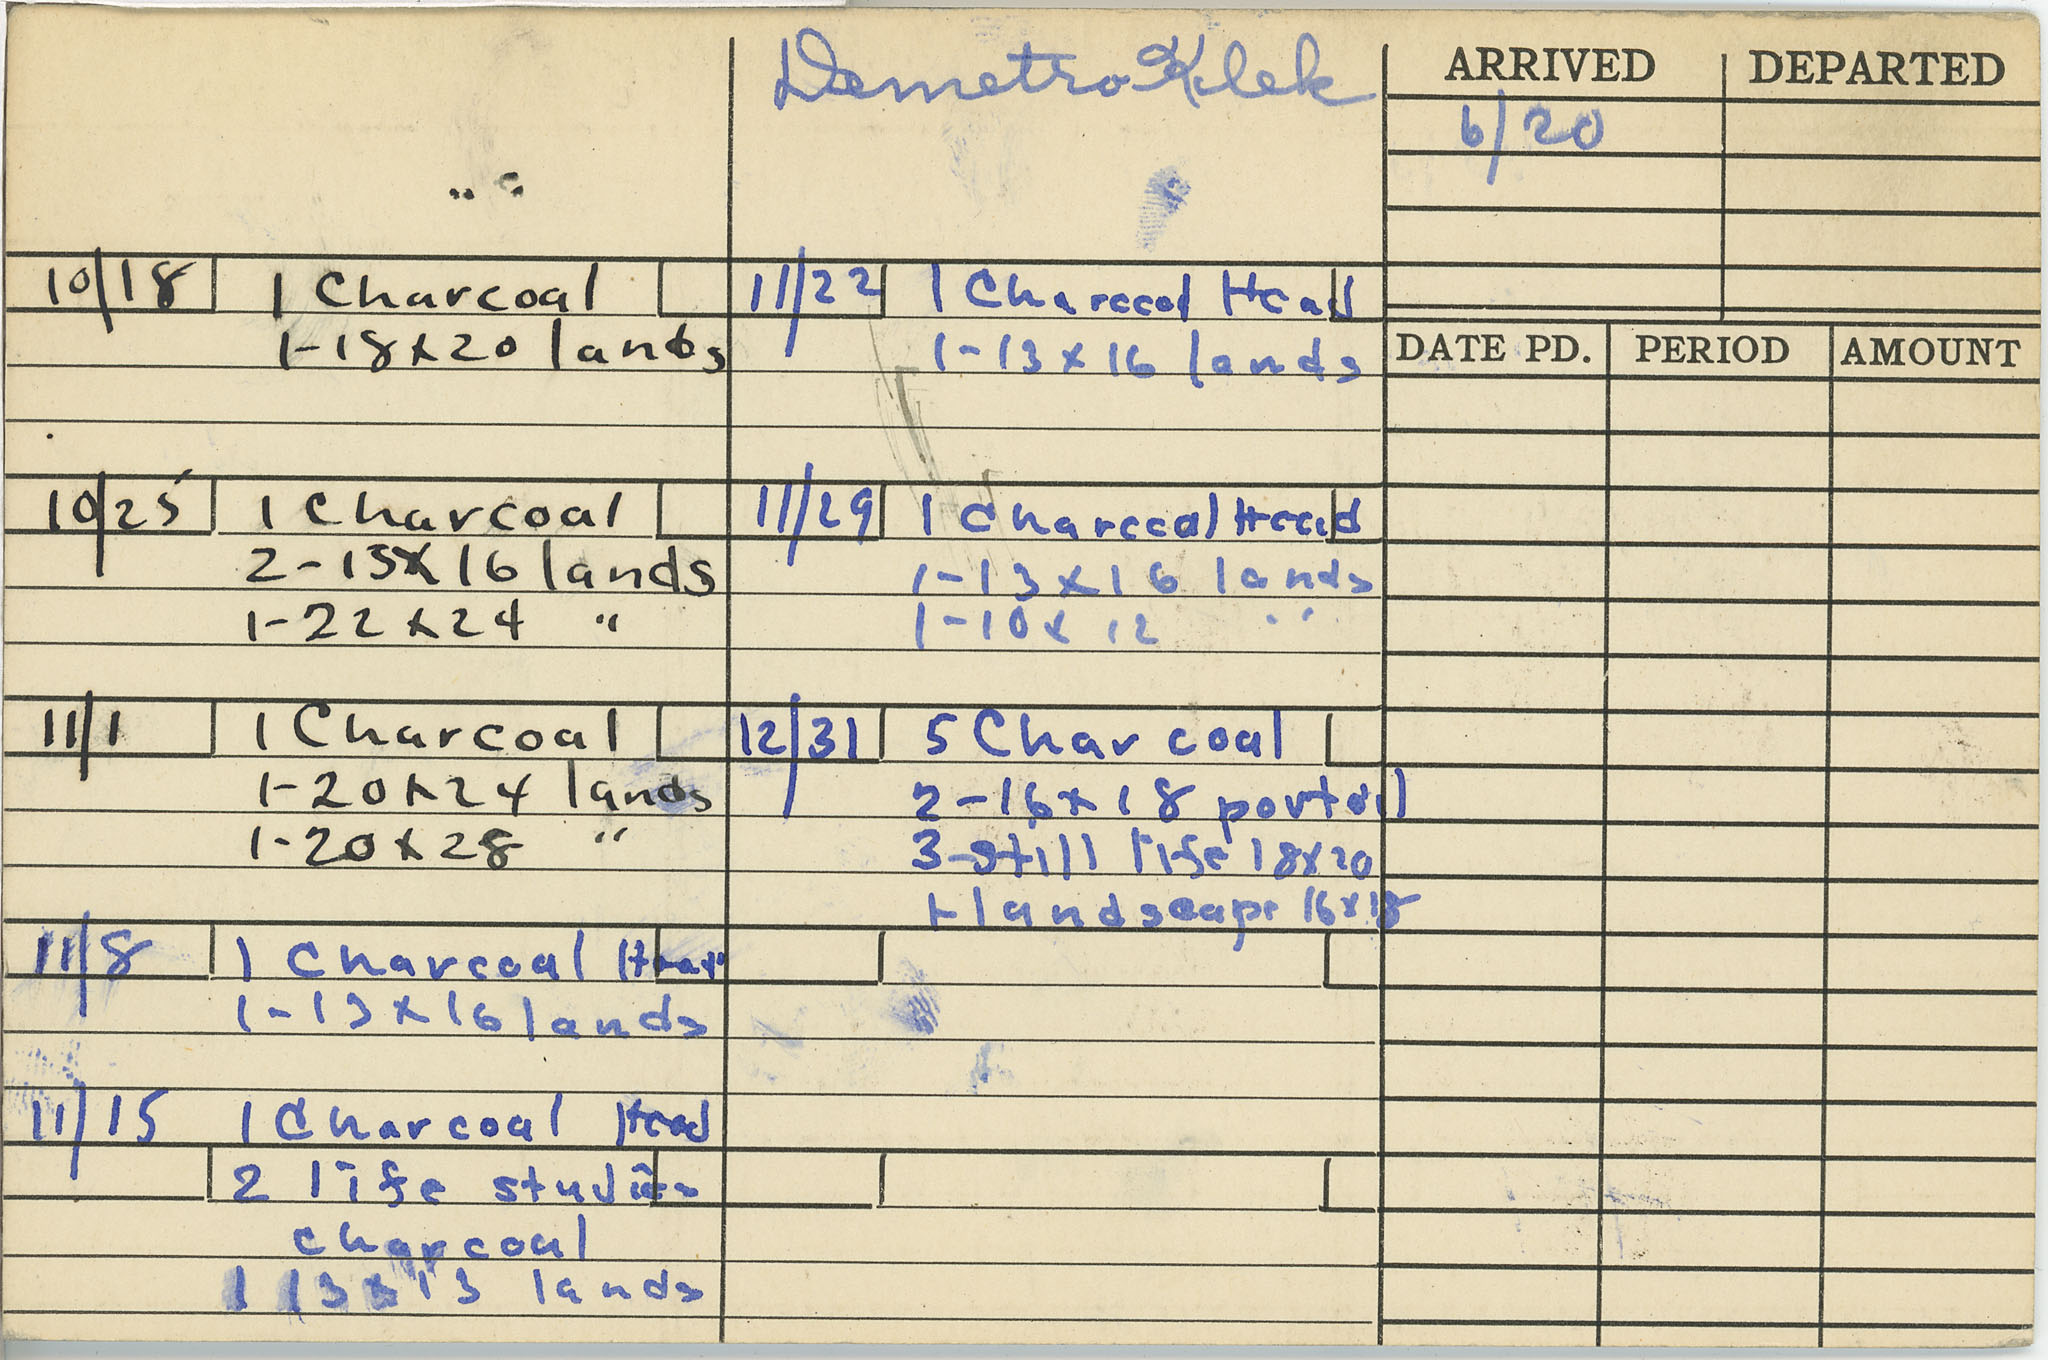 Demetro Klek
ARRIVED DEPARTED
6/20
10/18 1 Charcoal
1-18x20 lands
10/25 1 Charcoal
2-13x16 lands
1-22x24 "
11/1 1 Charcoal
1-20x24 lands
1-20x28 "
11/8 1 Charcoal Head
1-13x16 lands
11/15 1 Charcoal Head
2 life studies
charcoal
1 13x13 lands
11/22 1 Charcoal Head
1-13x16 lands
11/29 1 Charcoal Head
1-13x16 lands
1-10x12 "
12/31 5 Charcoal
2-16x18 portrait
3-still life 18x20
1-landscape 16x18
DATE PD. PERIOD AMOUNT